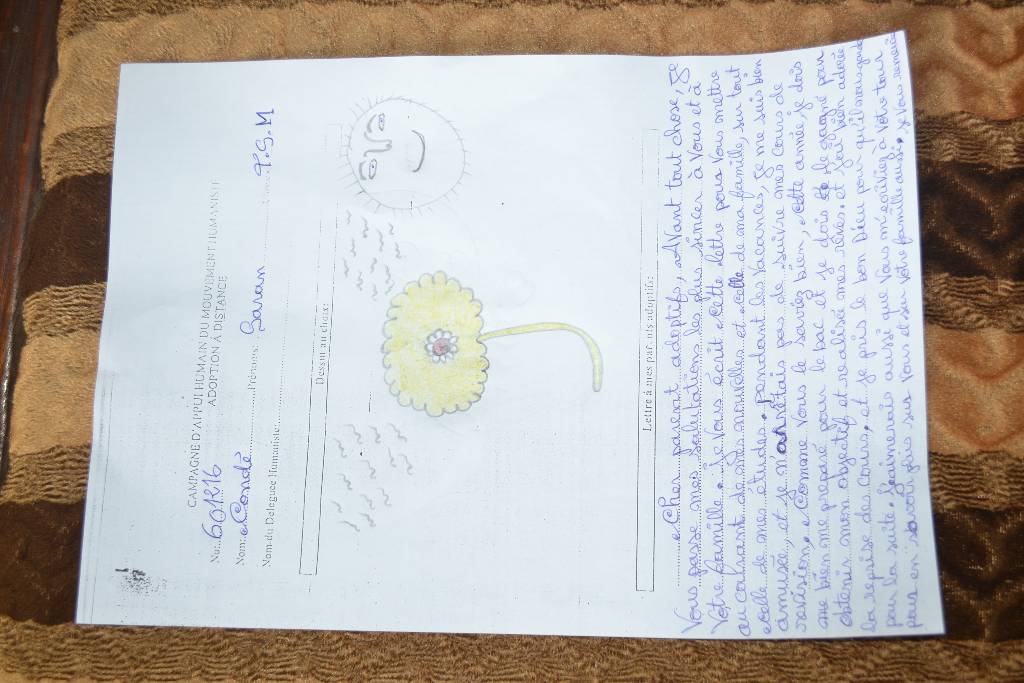 CAMPAGNE D'APPUI HUMAIN DU MOUVEMENT HUMANISTE
ADOPTION A DISTANCE
No:..601216
Nom: Condé Prénoms: Saran T.S.M
Nom du Déleguee Humaniste:
Dessin au choix:
Lettre à mes parents adoptifs:
Cher parent adoptifs, Avant tout chose, je
Vous passe mes salutations les plus sincer à Vous et à
Votre famille. Je Vous écrit cette lettre pour Vous mettre
au courant de mes nouvelles et celle de ma famille, sur tout
celle de mes études. pendant les Vacances, je me suis bien
amusée, et je m'arrêtais pas de suivre mes cours de
revision. Comme Vous le saviez bien, cette année je dois
me bien me preparé pour le bac et je dois le gagné pour
obtenir mon objectif et realisée mes rêves. et j'ai bien adorée
la reprise des cours, et je pris le bon Dieu pour qu'il nous garde
pour la suite. J'aimerais aussi que Vous m'écriviez à Votre tour
pour en savoir plus sur Vous et sur Votre famille aussi. je Vous remercie